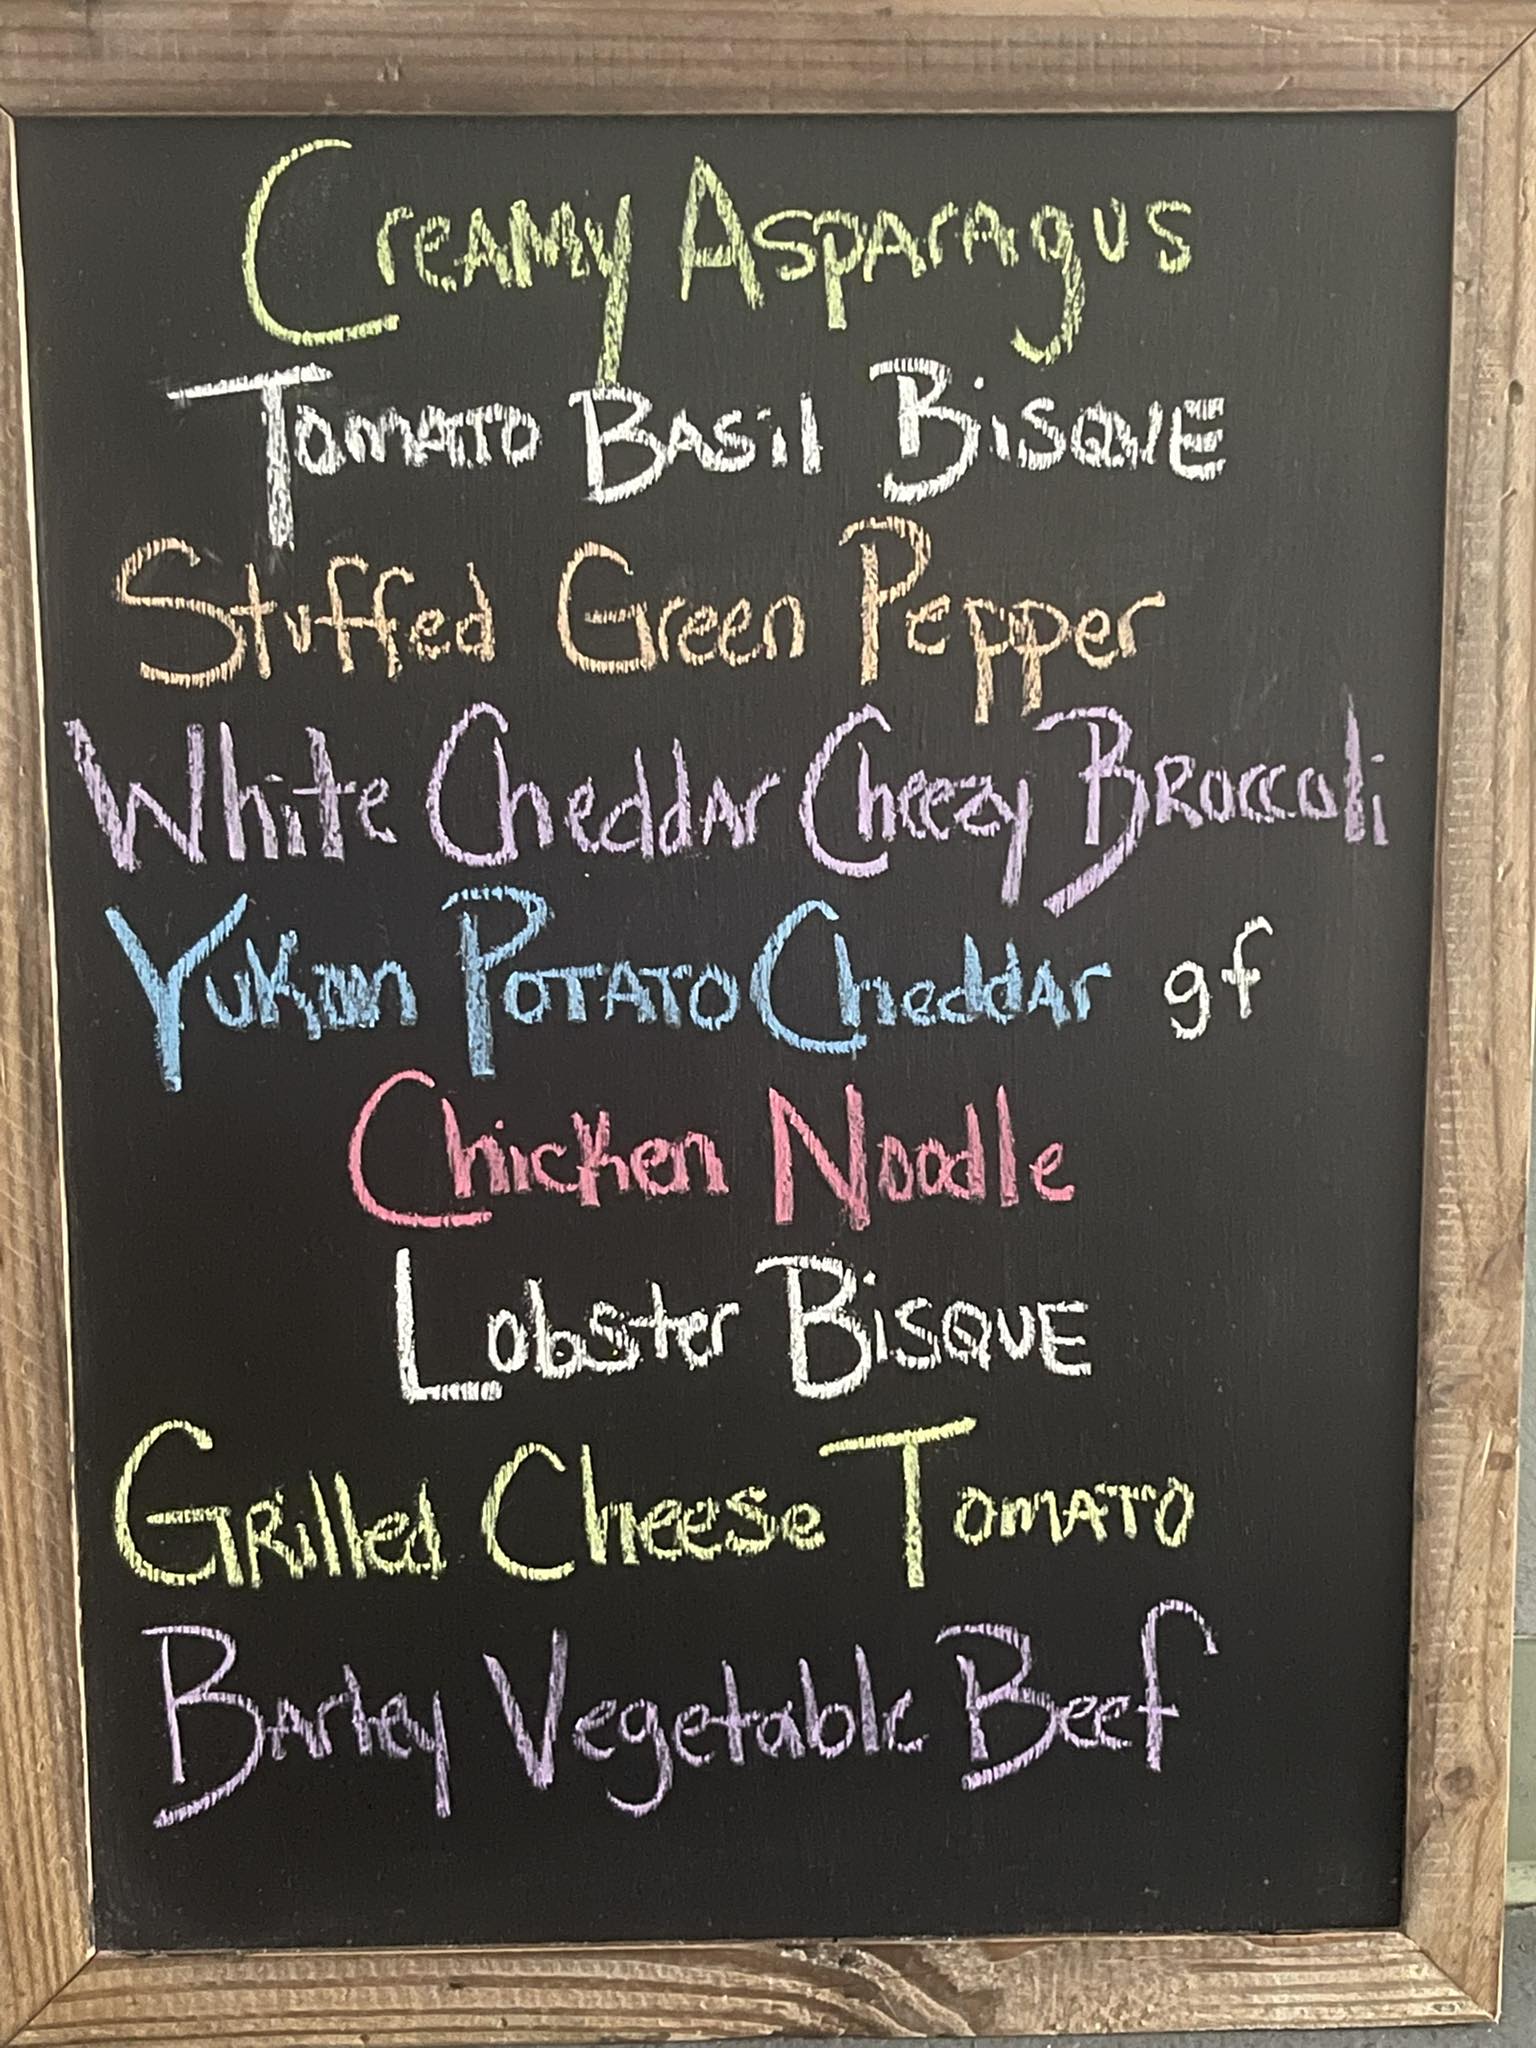 Creamy Asparagus
Tomato Basil Bisque
Stuffed Green Pepper
White Cheddar Cheezy Broccoli
Yukon Potato Cheddar gf
Chicken Noodle
Lobster Bisque
Grilled Cheese Tomato
Barley Vegetable Beef